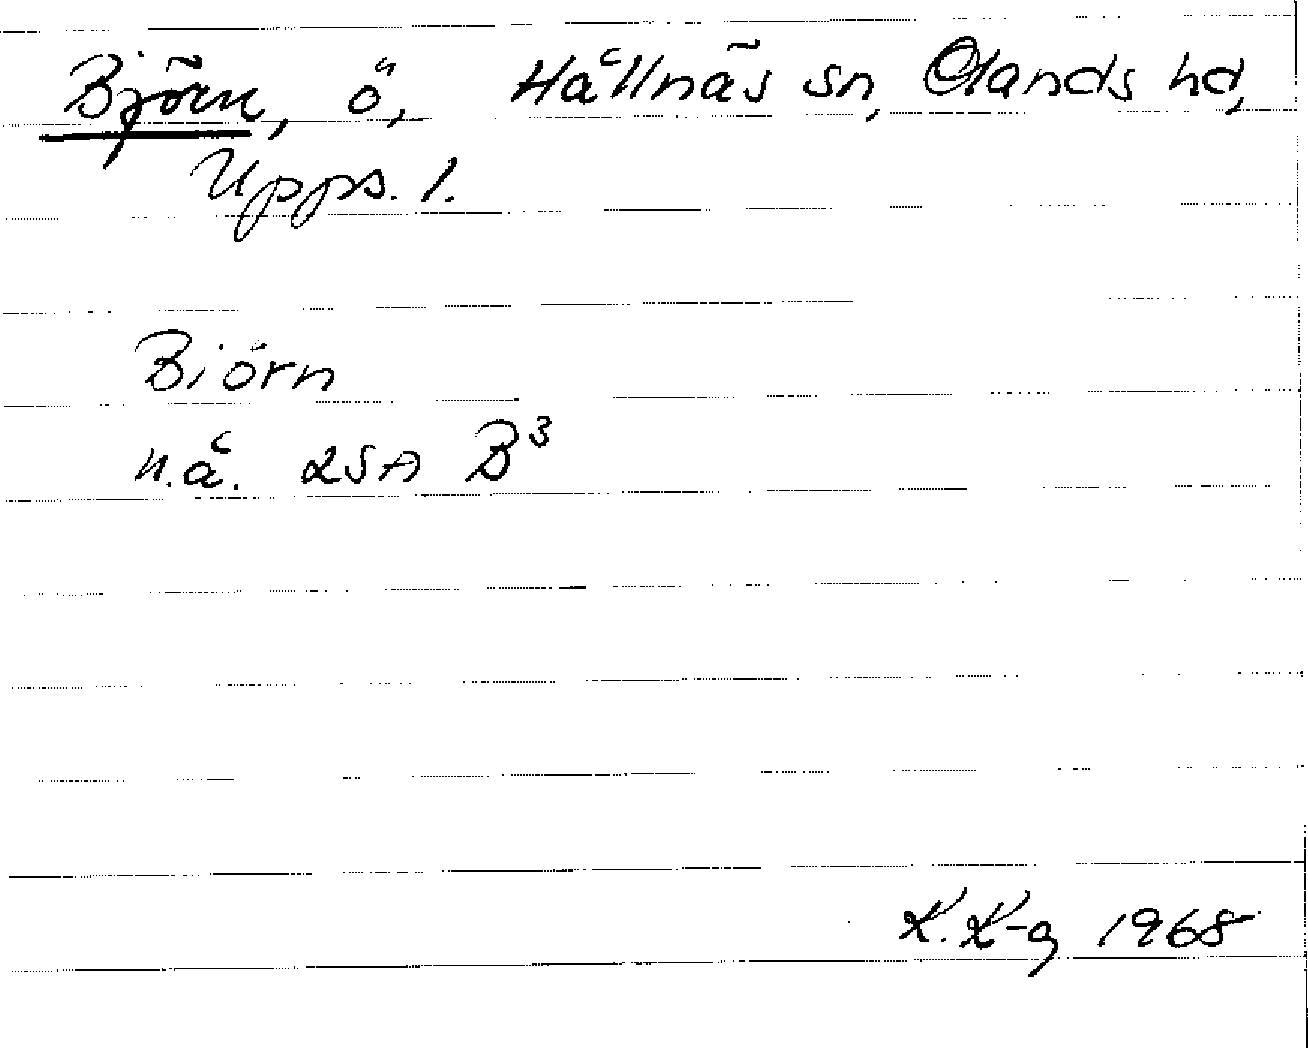 Björn, ö, Hållnäs sn, Olands hd,
Upps. l.
Biörn
n.å. LSA B³
K.K-g 1968